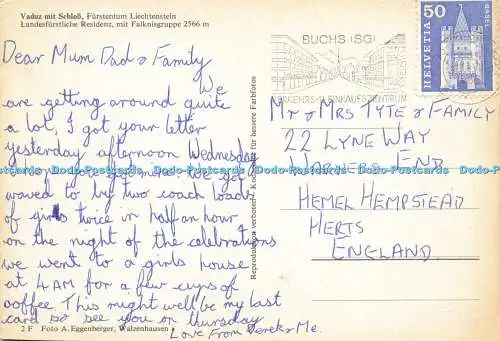 Vaduz mit Schloß, Fürstentum Liechtenstein
Landesfürstliche Residenz, mit Falknisgruppe 2566 m
Dear Mum Dad & Family
We
are getting around quite
a lot, I got your letter
yesterday afternoon Wednesday
We got
waved to by two coach loads
of girls twice in half an hour
on the night of the celebrations
we went to a girls house
at 4AM for a few cups of
coffee This might well be my last
card so see you on thursday
Love From Derek & Me.
2 F Foto A. Eggenberger, Walzenhausen
Reproduktion verboten
für bessere Farbfotos
BUCHS (SG)
VERKEHRS- + EINKAUFSZENTRUM
50
HELVETIA
BASEL
Mr & Mrs TYTE & FAMILY
22 LYNE WAY
WARNERS END
HEMEL HEMPSTEAD
HERTS
ENGLAND.
Dodo-Postcards Dodo-Postcards Dodo-Postcards Dodo-Postcards